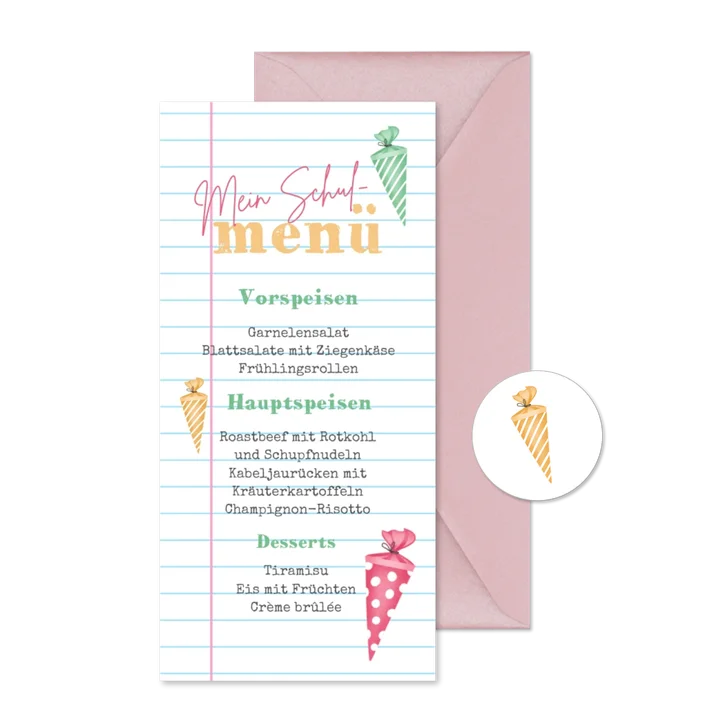 Mein Schul-
menü
Vorspeisen
Garnelensalat
Blattsalate mit Ziegenkäse
Frühlingsrollen
Hauptspeisen
Roastbeef mit Rotkohl
und Schupfnudeln
Kabeljaurücken mit
Kräuterkartoffeln
Champignon-Risotto
Desserts
Tiramisu
Eis mit Früchten
Crème brûlée